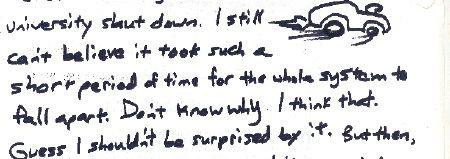 university shut down. I still
can't believe it took such a
short period of time for the whole system to
fall apart. Don't know why I think that.
Guess I shouldn't be surprised by it. But then,